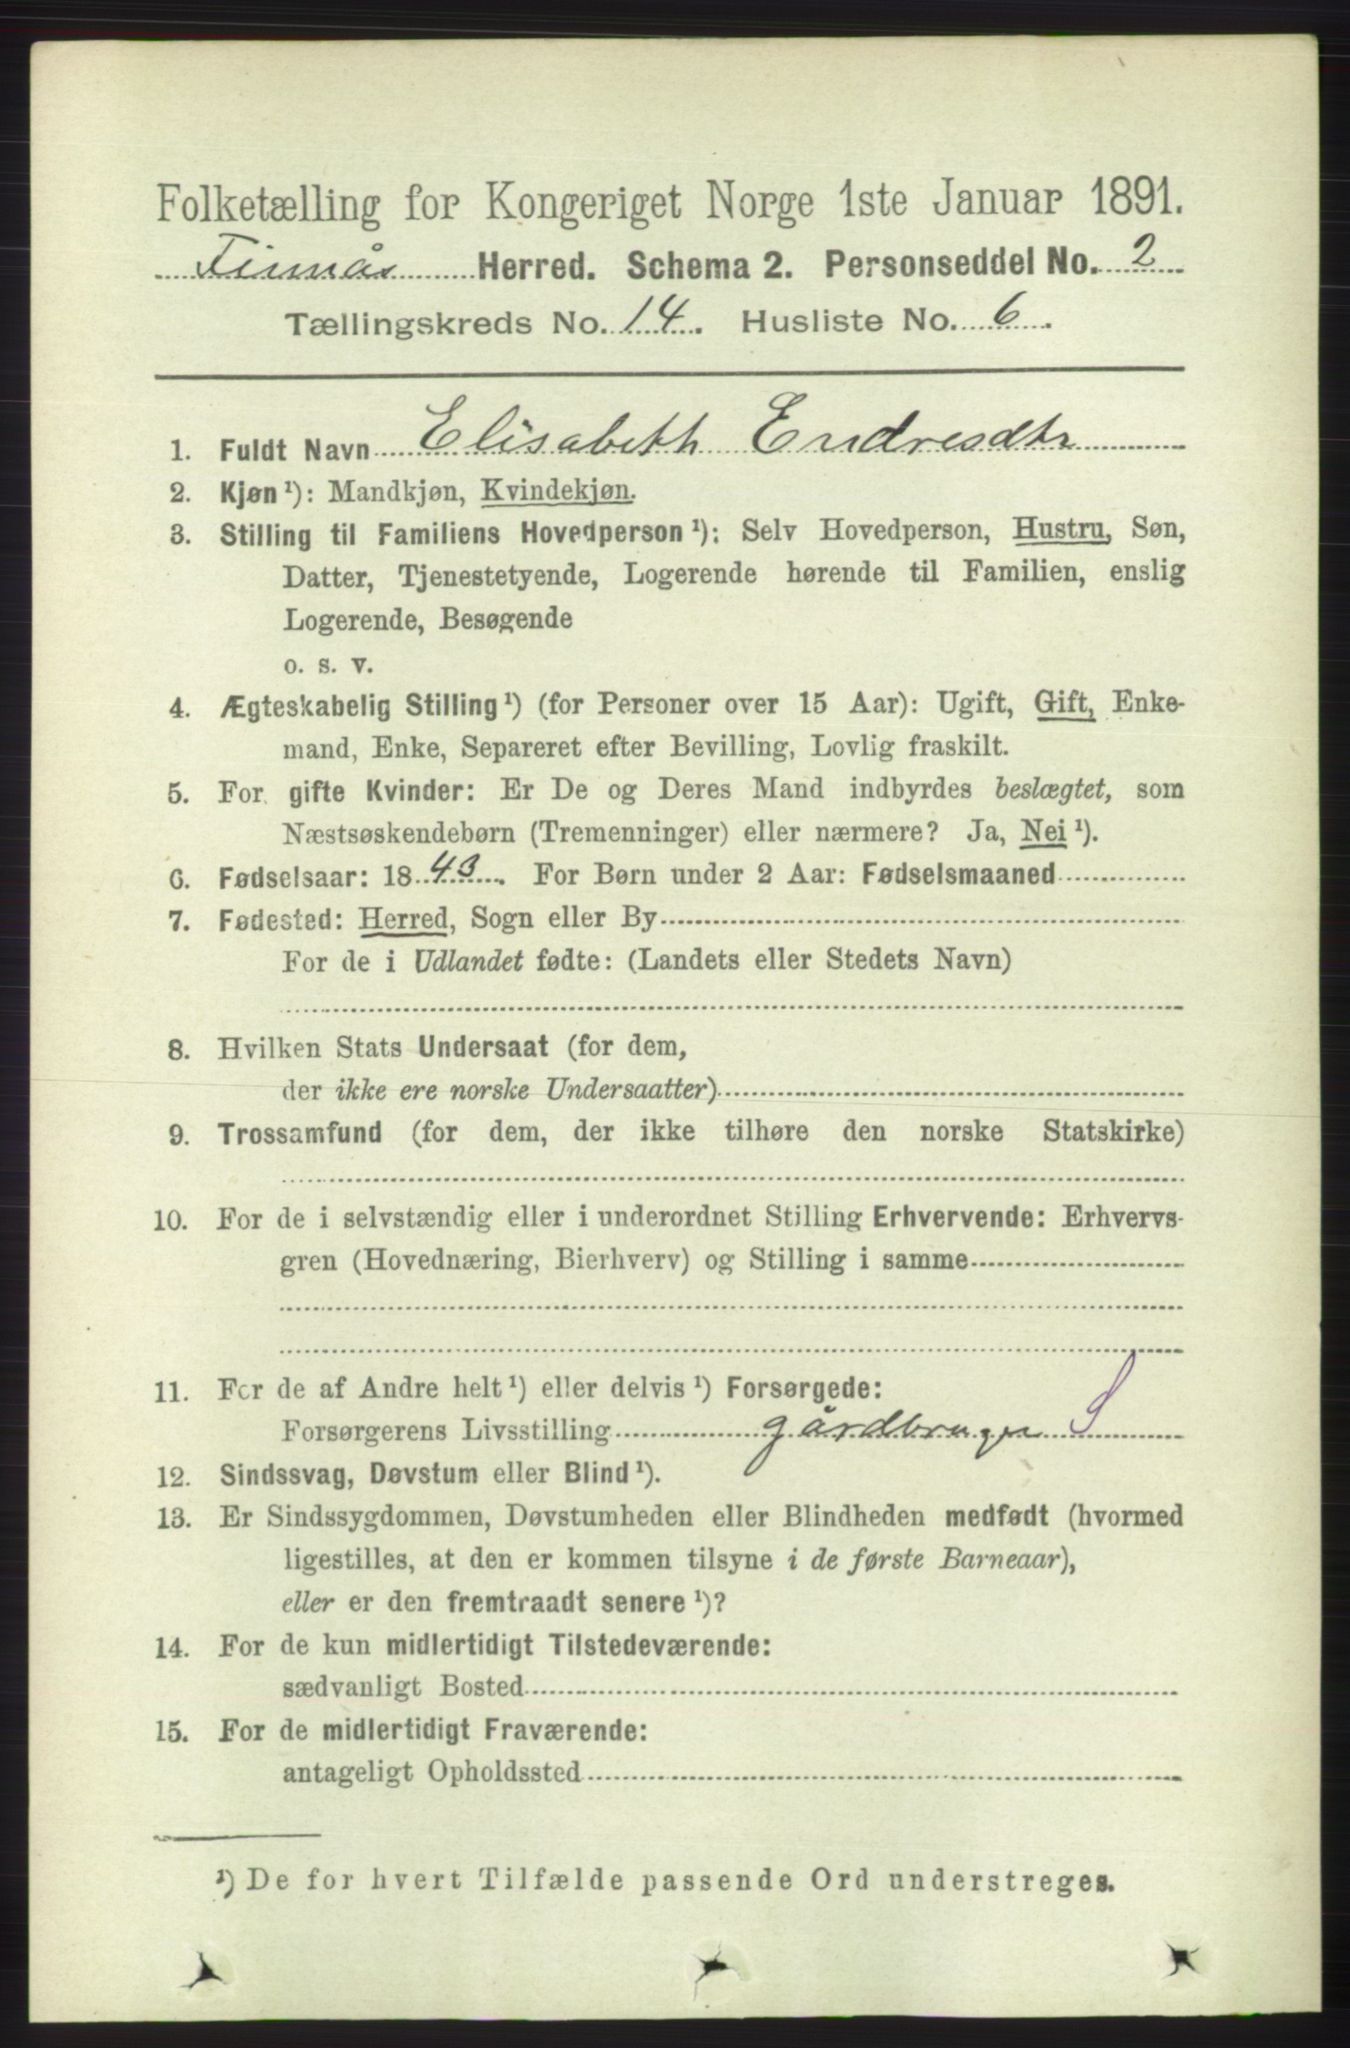 Folketælling for Kongeriget Norge 1ste Januar 1891.
Finnås Herred. Schema 2. Personseddel No. 2
Tællingskreds No. 14. Husliste No. 6.
1. Fuldt Navn Elisabeth Endresdtr
2. Kjøn ¹): Mandkjøn, Kvindekjøn.
3. Stilling til Familiens Hovedperson ¹): Selv Hovedperson, Hustru, Søn,
Datter, Tjenestetyende, Logerende hørende til Familien, enslig
Logerende, Besøgende
o. s. v.
4. Ægteskabelig Stilling ¹) (for Personer over 15 Aar): Ugift, Gift, Enke-
mand, Enke, Separeret efter Bevilling, Lovlig fraskilt.
5. For gifte Kvinder: Er De og Deres Mand indbyrdes beslægtet, som
Næstsøskendebørn (Tremenninger) eller nærmere? Ja, Nei ¹).
6. Fødselsaar: 1843. For Børn under 2 Aar: Fødselsmaaned
7. Fødested: Herred, Sogn eller By
For de i Udlandet fødte: (Landets eller Stedets Navn)
8. Hvilken Stats Undersaat (for dem,
der ikke ere norske Undersaatter)
9. Trossamfund (for dem, der ikke tilhøre den norske Statskirke)
10. For de i selvstændig eller i underordnet Stilling Erhvervende: Erhvervs-
gren (Hovednæring, Bierhverv) og Stilling i samme
11. For de af Andre helt ¹) eller delvis ¹) Forsørgede:
Forsørgerens Livsstilling gårdbruger S
12. Sindssvag, Døvstum eller Blind ¹).
13. Er Sindssygdommen, Døvstumheden eller Blindheden medfødt (hvormed
ligestilles, at den er kommen tilsyne i de første Barneaar),
eller er den fremtraadt senere ¹)?
14. For de kun midlertidigt Tilstedeværende:
sædvanligt Bosted
15. For de midlertidigt Fraværende:
antageligt Opholdssted
¹) De for hvert Tilfælde passende Ord understreges.